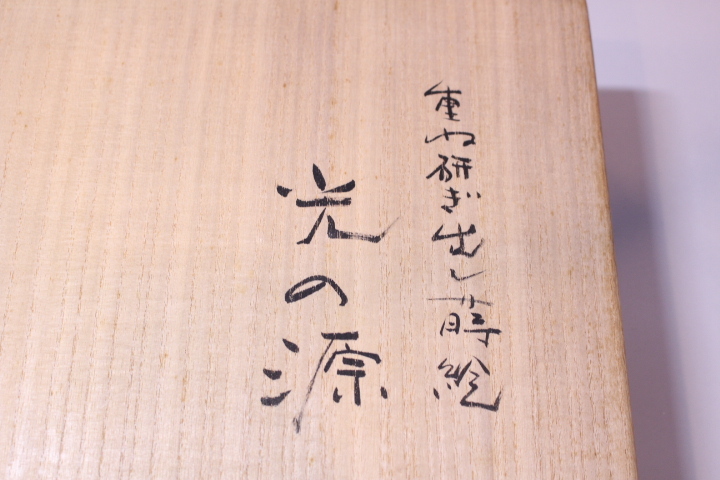 重ね研ぎ出し蒔絵
光の源